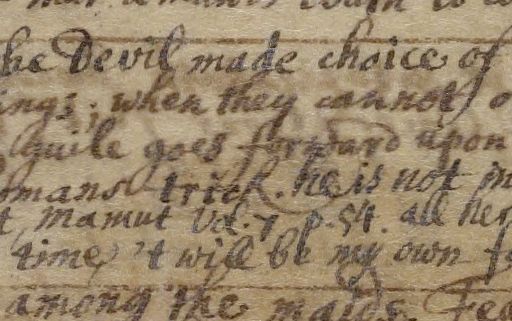 he Devil made choice of
ings; when they cannot
guile goes forward upon
omans trick. he is not in
t Mamut Vol. 7 p. 54. all her
time, 't will be my own
among the maids.